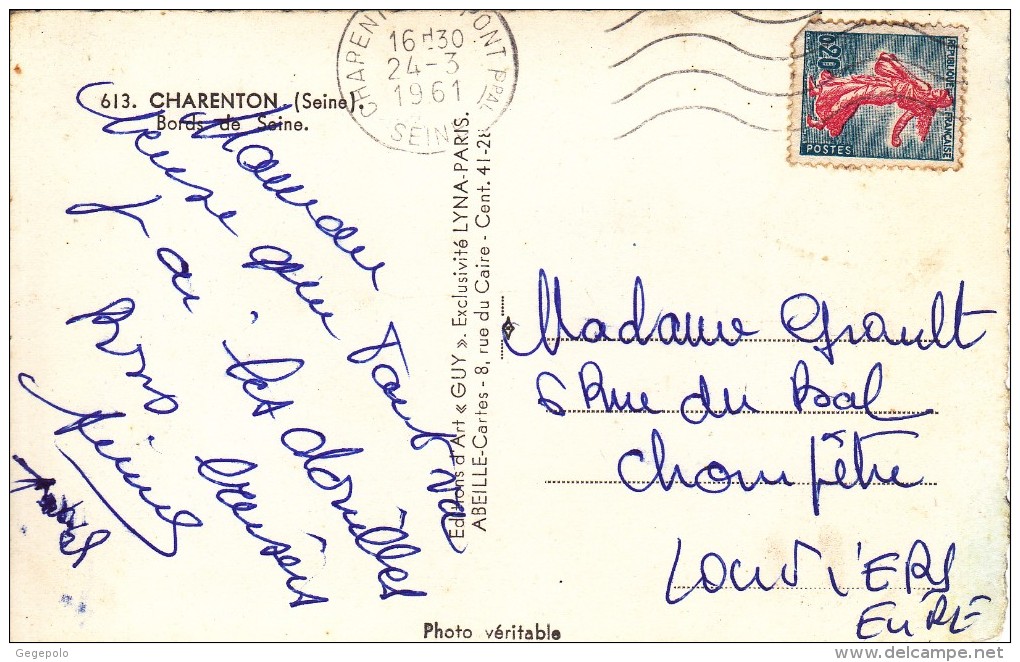 613. CHARENTON (Seine).
Bords de Seine.
CHARENTON PONT PPAL
16H30
24-3
1961
SEINE
0,20
REPUBLIQUE FRANCAISE
POSTES
Maman
que tout va
J'ai les
Bons baisers
Editions d'Art « GUY ». Exclusivité LYNA-PARIS.
ABEILLE-Cartes - 8, rue du Caire - Cent. 41-28
Madame Grault
6 Rue du Bal
Champêtre
LOUVIERS
EURE
Photo véritable
Gegepolo
delcampe.net